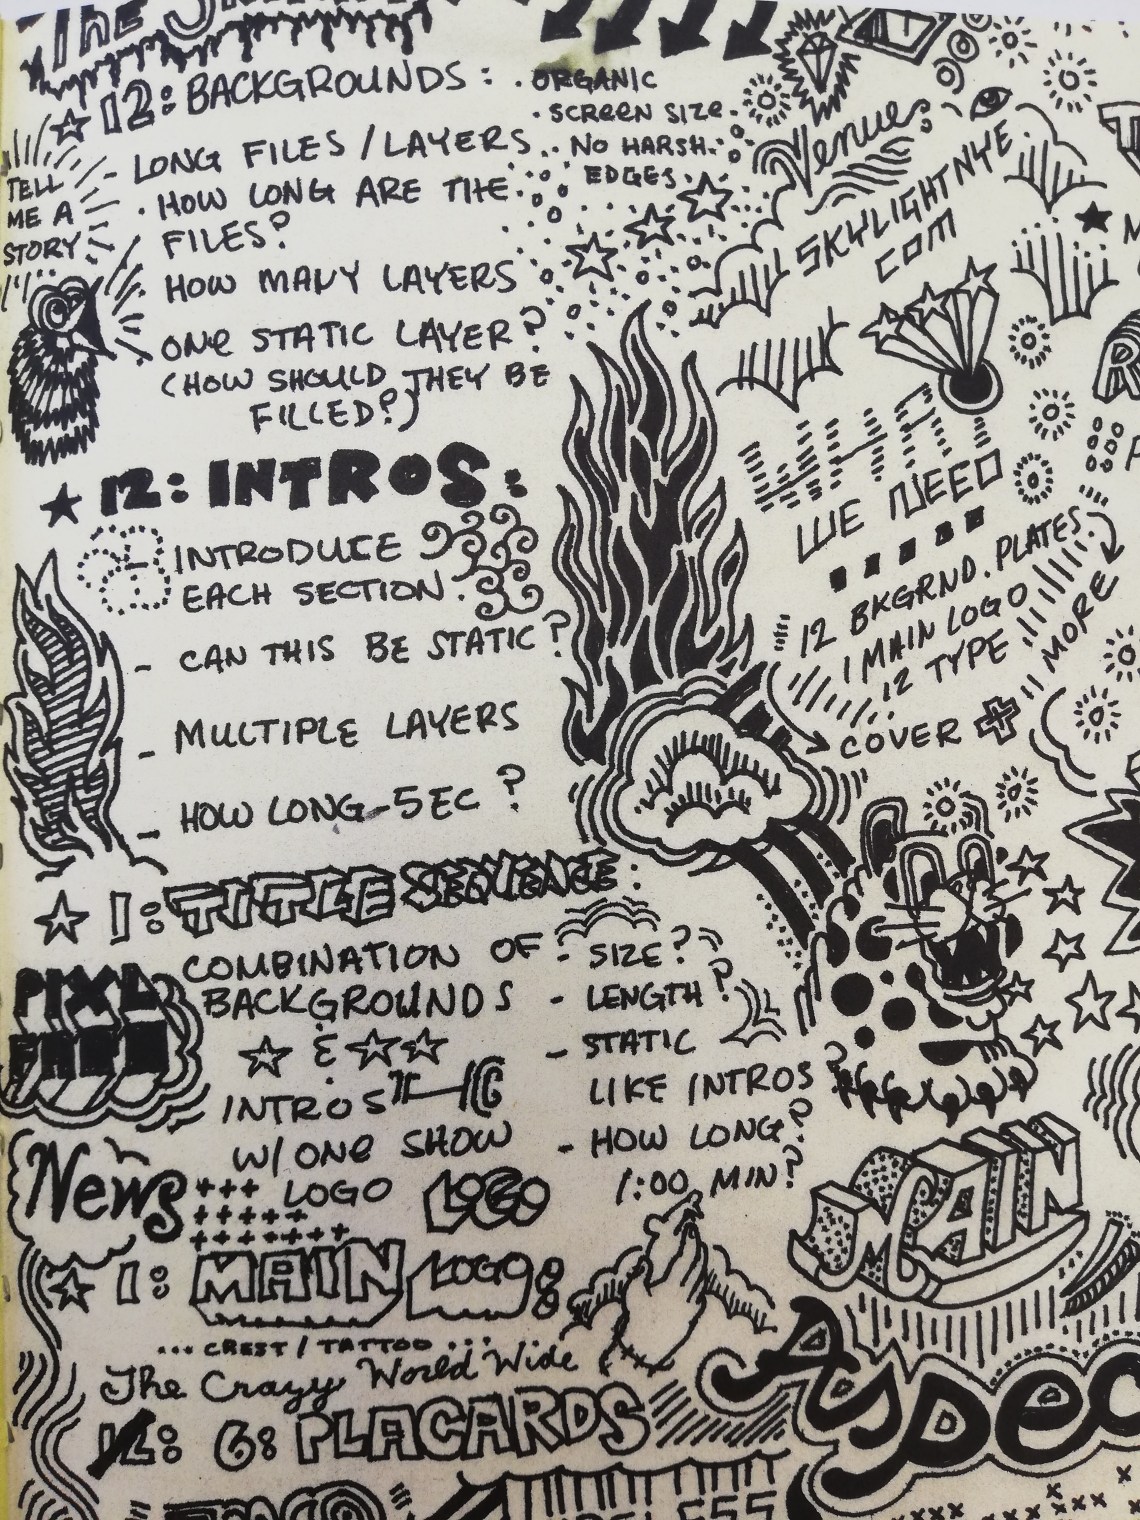 The
12: BACKGROUNDS:
· ORGANIC
· SCREEN SIZE
· NO HARSH
EDGES
- LONG FILES / LAYERS
· HOW LONG ARE THE
FILES?
HOW MANY LAYERS
ONE STATIC LAYER?
(HOW SHOULD THEY BE
FILLED?)
TELL
ME A
STORY
12: INTROS:
INTRODUCE
EACH SECTION.
- CAN THIS BE STATIC?
- MULTIPLE LAYERS
- HOW LONG - 5EC?
1: TITLE SEQUENCE:
COMBINATION OF:
BACKGROUNDS
&
INTROS
W/ ONE SHOW
LOGO LOGO
- SIZE?
- LENGTH?
- STATIC
LIKE INTROS?
- HOW LONG?
1:00 MIN?
PIXL
News
1: MAIN LOGO:
... CREST / TATTOO ...
The Crazy World Wide
12: 6: PLACARDS
Venue:
SKYLIGHTNYE.
COM
WHAT
WE NEED
12 BKGRND. PLATES
1 MAIN LOGO
12 TYPE
MORE
COVER +
MAIN
Aspec